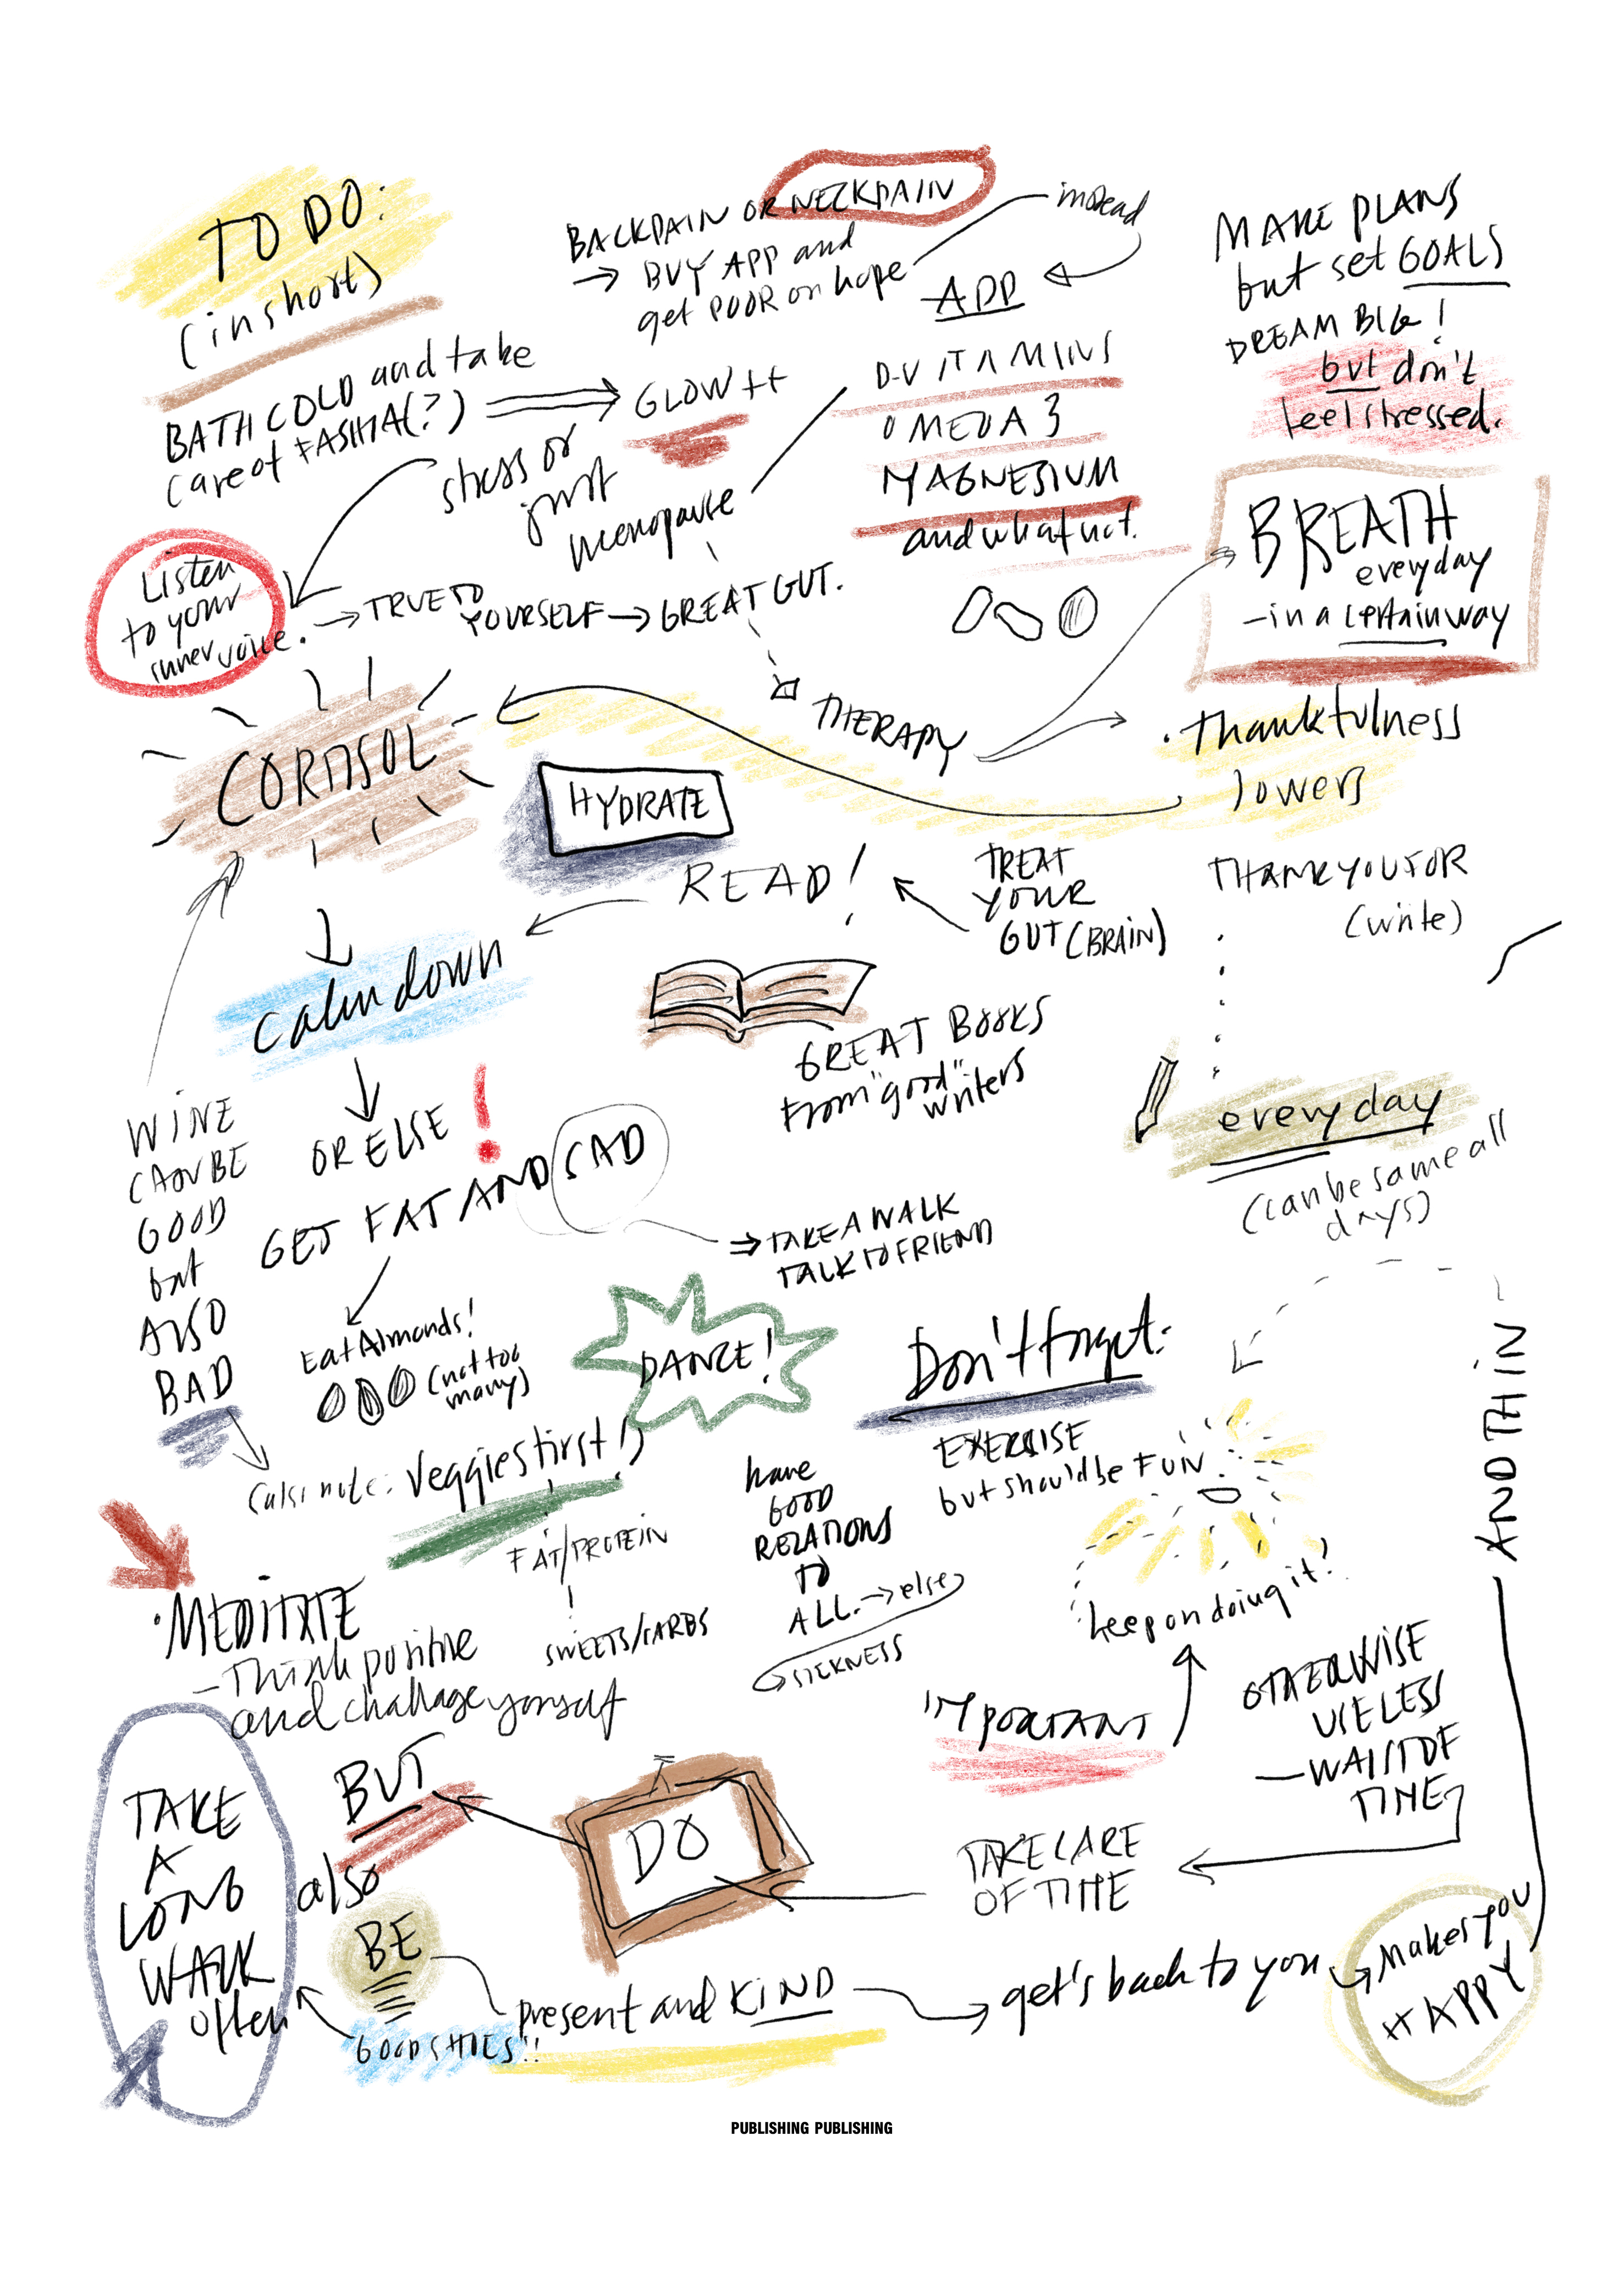 TO DO:
(in short)
BATH COLD and take
care of FASHIA(?)
GLOW ++
BACKPAIN OR NECKPAIN
→ BUY APP and
get POOR on hope
instead
APP
D-VITAMINS
OMEGA 3
MAGNESIUM
and what not.
MAKE PLANS
but set GOALS
DREAM BIG!
but don't
feel stressed.
stress or
just
menopause
Listen
to your
inner voice.
→ TRUE TO
YOURSELF → GREAT GUT.
BREATH
everyday
– in a certain way
THERAPY
· Thankfulness
lowers
CORTISOL
HYDRATE
READ!
TREAT
YOUR
GUT (BRAIN)
THANK YOU FOR
(write)
calm down
GREAT BOOKS
from "good"
writers
every day
(can be same all
days)
WINE
CAN BE
GOOD
but
ALSO
BAD
OR ELSE !
GET FAT AND SAD
⇒ TAKE A WALK
TALK TO FRIEND
Eat Almonds!
(not too
many)
DANCE!
Don't forget:
EXERCISE
but should be FUN
keep on doing it!
AND THIN
(also note: Veggies first!)
FAT/PROTEIN
SWEETS/CARBS
have
GOOD
RELATIONS
TO
ALL. → else
SICKNESS
· MEDITATE
– Think positive
and challage yourself
IMPORTANT
OTHERWISE
USELESS
– WAIST OF
TIME
TAKE CARE
OF TIME
DO
BUT
also
BE
TAKE
A
LONG
WALK
often
GOOD SHOES!!
present and KIND
get's back to you
Makes you
HAPPY
PUBLISHING PUBLISHING